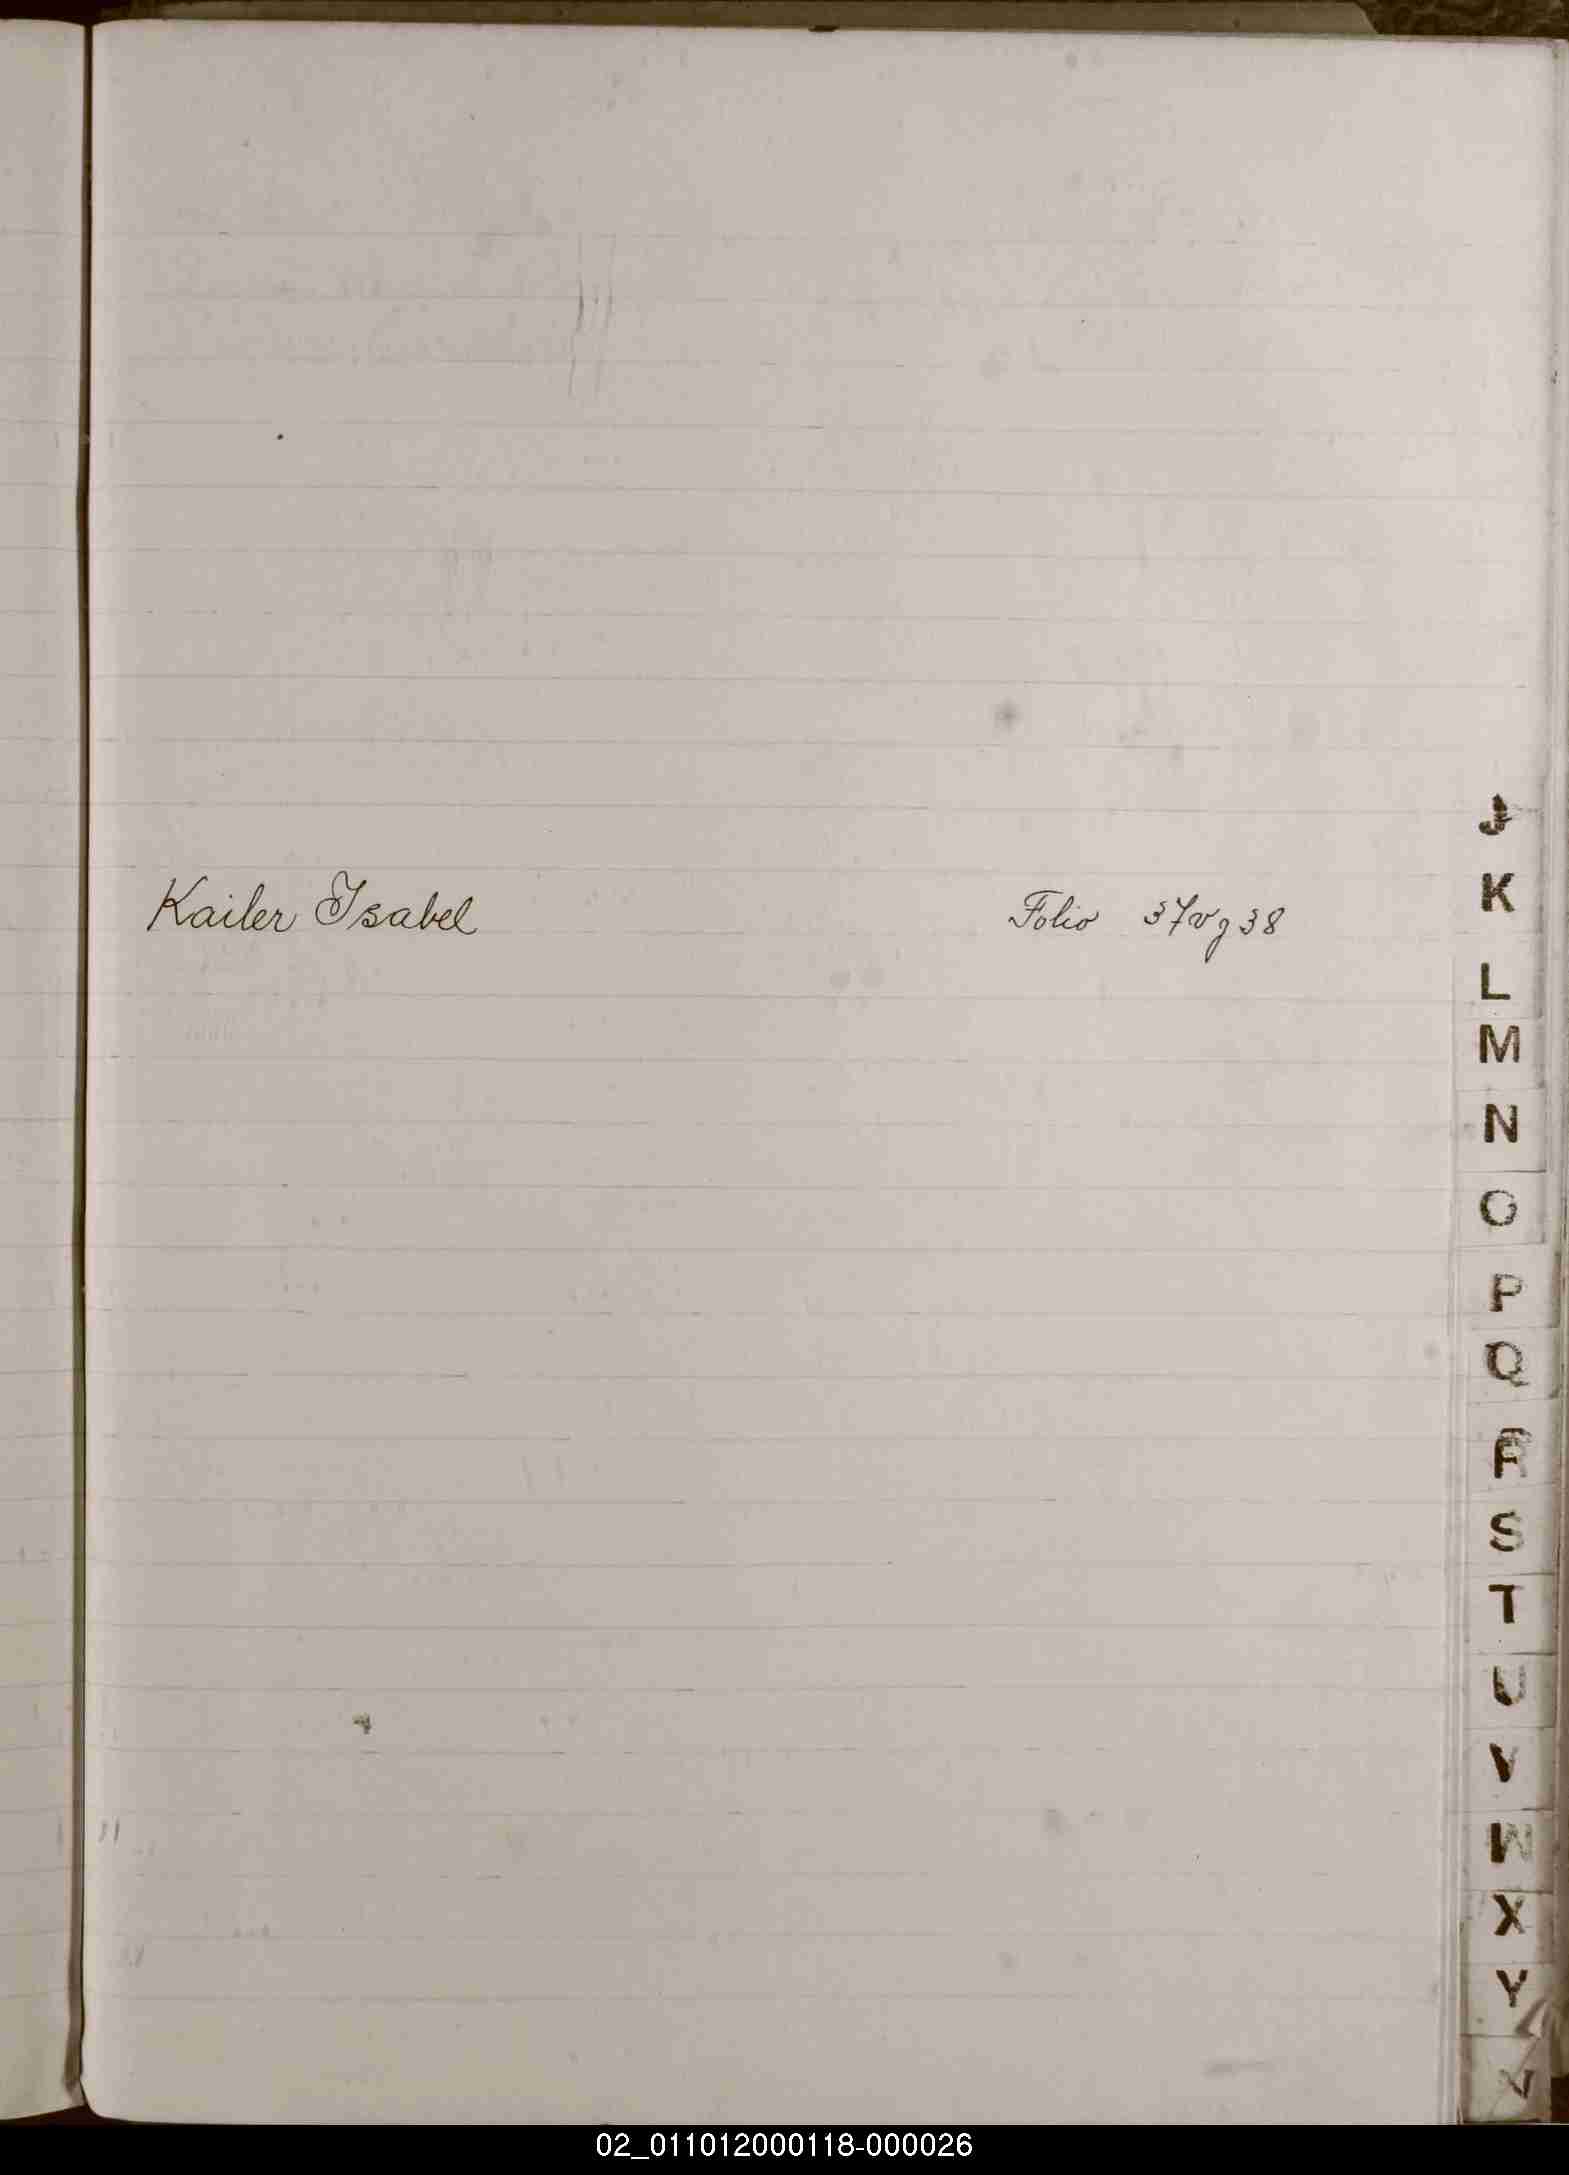 Kailer Isabel Folio 37v y 38
J
K
L
M
N
O
P
Q
R
S
T
U
V
W
X
Y
02_011012000118-000026